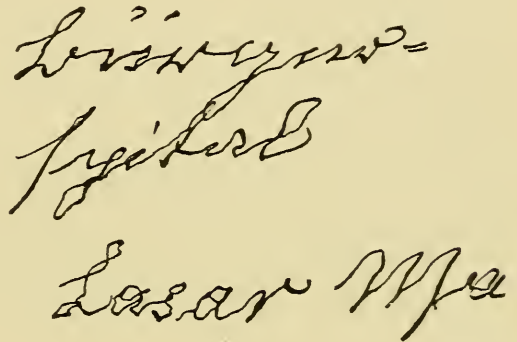 Bürger-
spital
Lasar Ma